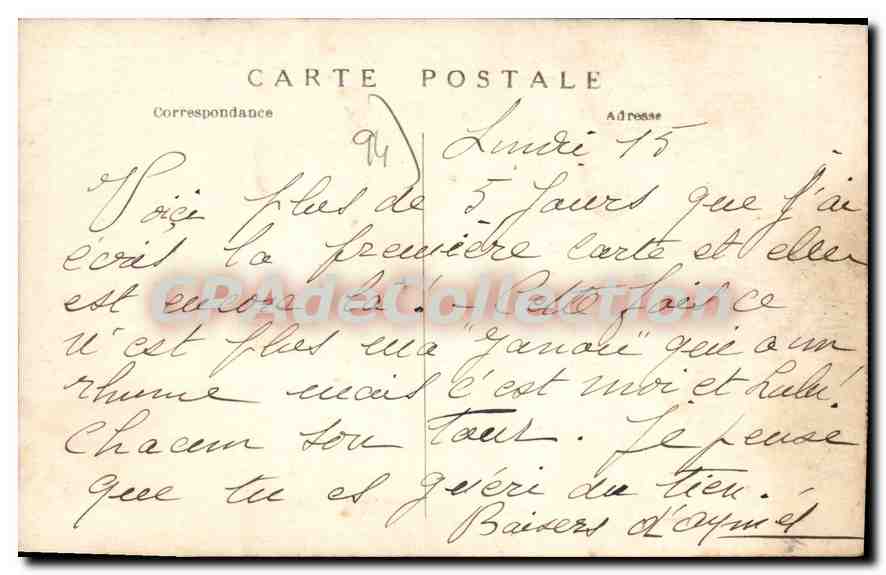 CARTE POSTALE
Correspondance
Adresse
94
Lundi 15
Voici plus de 5 jours que j'ai
écris la première carte et elle
est encore là! - Cette fois ce
n'est plus ma "Janou" qui a un
rhume mais c'est moi et Lulu!
Chacun son tour. Je pense
que tu es guéri du tien.
Baisers d'
CPAdeCollection